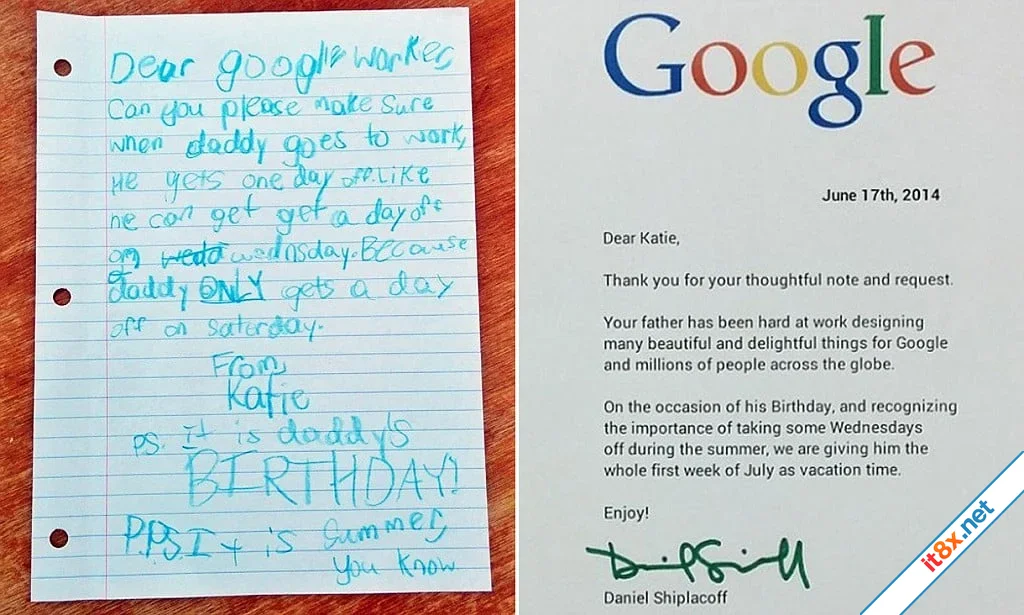 Dear google worker,
Can you please make sure
when daddy goes to work,
He gets one day off. Like
he can get get a day off
on wednsday. Because
daddy ONLY gets a day
off on saturday.
From,
Katie
P.S. It is daddy's
BIRTHDAY!
P.P.S It is summer,
you know
Google
June 17th, 2014
Dear Katie,
Thank you for your thoughtful note and request.
Your father has been hard at work designing
many beautiful and delightful things for Google
and millions of people across the globe.
On the occasion of his Birthday, and recognizing
the importance of taking some Wednesdays
off during the summer, we are giving him the
whole first week of July as vacation time.
Enjoy!
Daniel Shiplacoff
it8x.net